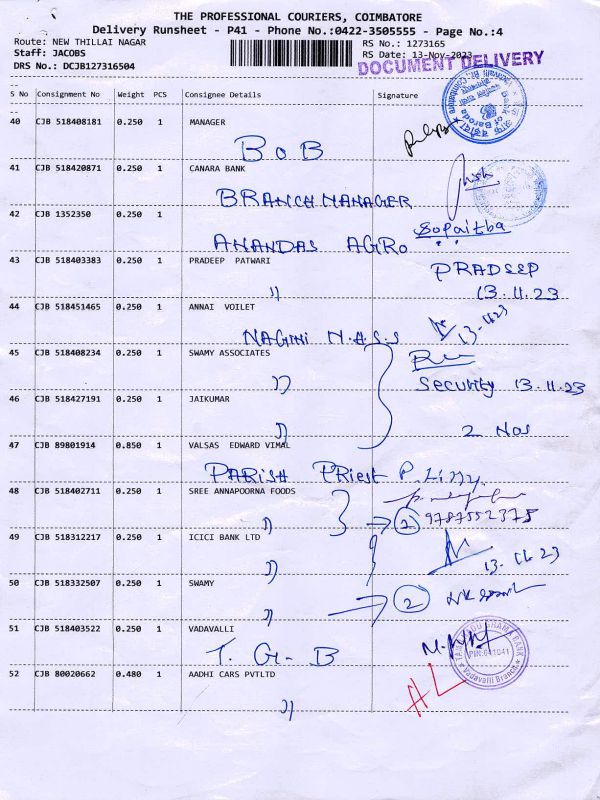 THE PROFESSIONAL COURIERS, COIMBATORE
Delivery Runsheet - P41 - Phone No.:0422-3505555 - Page No.:4
Route: NEW THILLAI NAGAR RS No.: 1273165
Staff: JACOBS RS Date: 13-Nov-2023
DRS No.: DCJB127316504 DOCUMENT DELIVERY
S No Consignment No Weight PCS Consignee Details Signature
40 CJB 518408181 0.250 1 MANAGER
Bank of Baroda
BOB
41 CJB 518420871 0.250 1 CANARA BANK
BRANCH MANAGER
42 CJB 1352350 0.250 1
ANANDAS AGRO
43 CJB 518403383 0.250 1 PRADEEP PATWARI PRADEEP
" 13.11.23
44 CJB 518451465 0.250 1 ANNAI VOILET
NAGINI H.A.S.S
45 CJB 518408234 0.250 1 SWAMY ASSOCIATES
" Security 13.11.23
46 CJB 518427191 0.250 1 JAIKUMAR
" 2 Nos
47 CJB 89801914 0.850 1 VALSAS EDWARD VIMAL
PARISH PRiest P. Lizzy.
48 CJB 518402711 0.250 1 SREE ANNAPOORNA FOODS
" 2 9787552375
49 CJB 518312217 0.250 1 ICICI BANK LTD
" 13.11.23
50 CJB 518332507 0.250 1 SWAMY
" 2
51 CJB 518403522 0.250 1 VADAVALLI
T. G. B
TAMIL NADU GRAMA BANK
PIN:641041
Vadavalli Branch
52 CJB 80020662 0.480 1 AADHI CARS PVTLTD
"